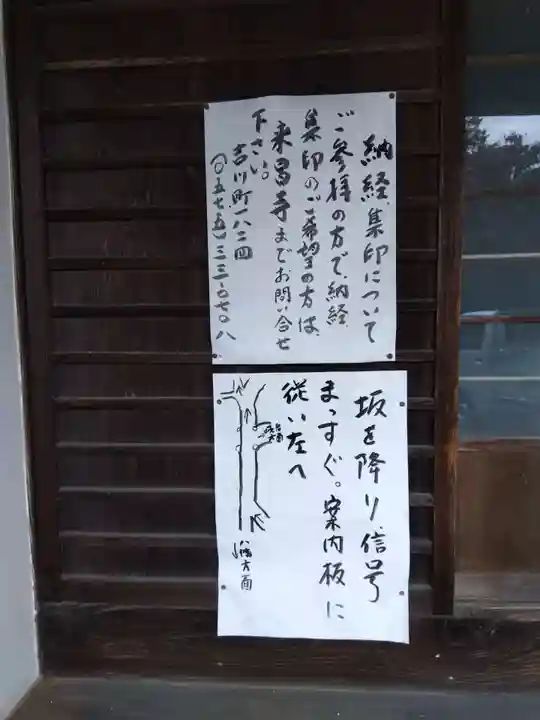 納経、集印について
ご参拝の方で、納経、
集印のご希望の方は、
来昌寺までお問い合せ
下さい。
吉川町一八二四
(〇五七五)三三-〇七〇八
坂を降り、信号
まっすぐ。案内板に
従い左へ
八幡方面